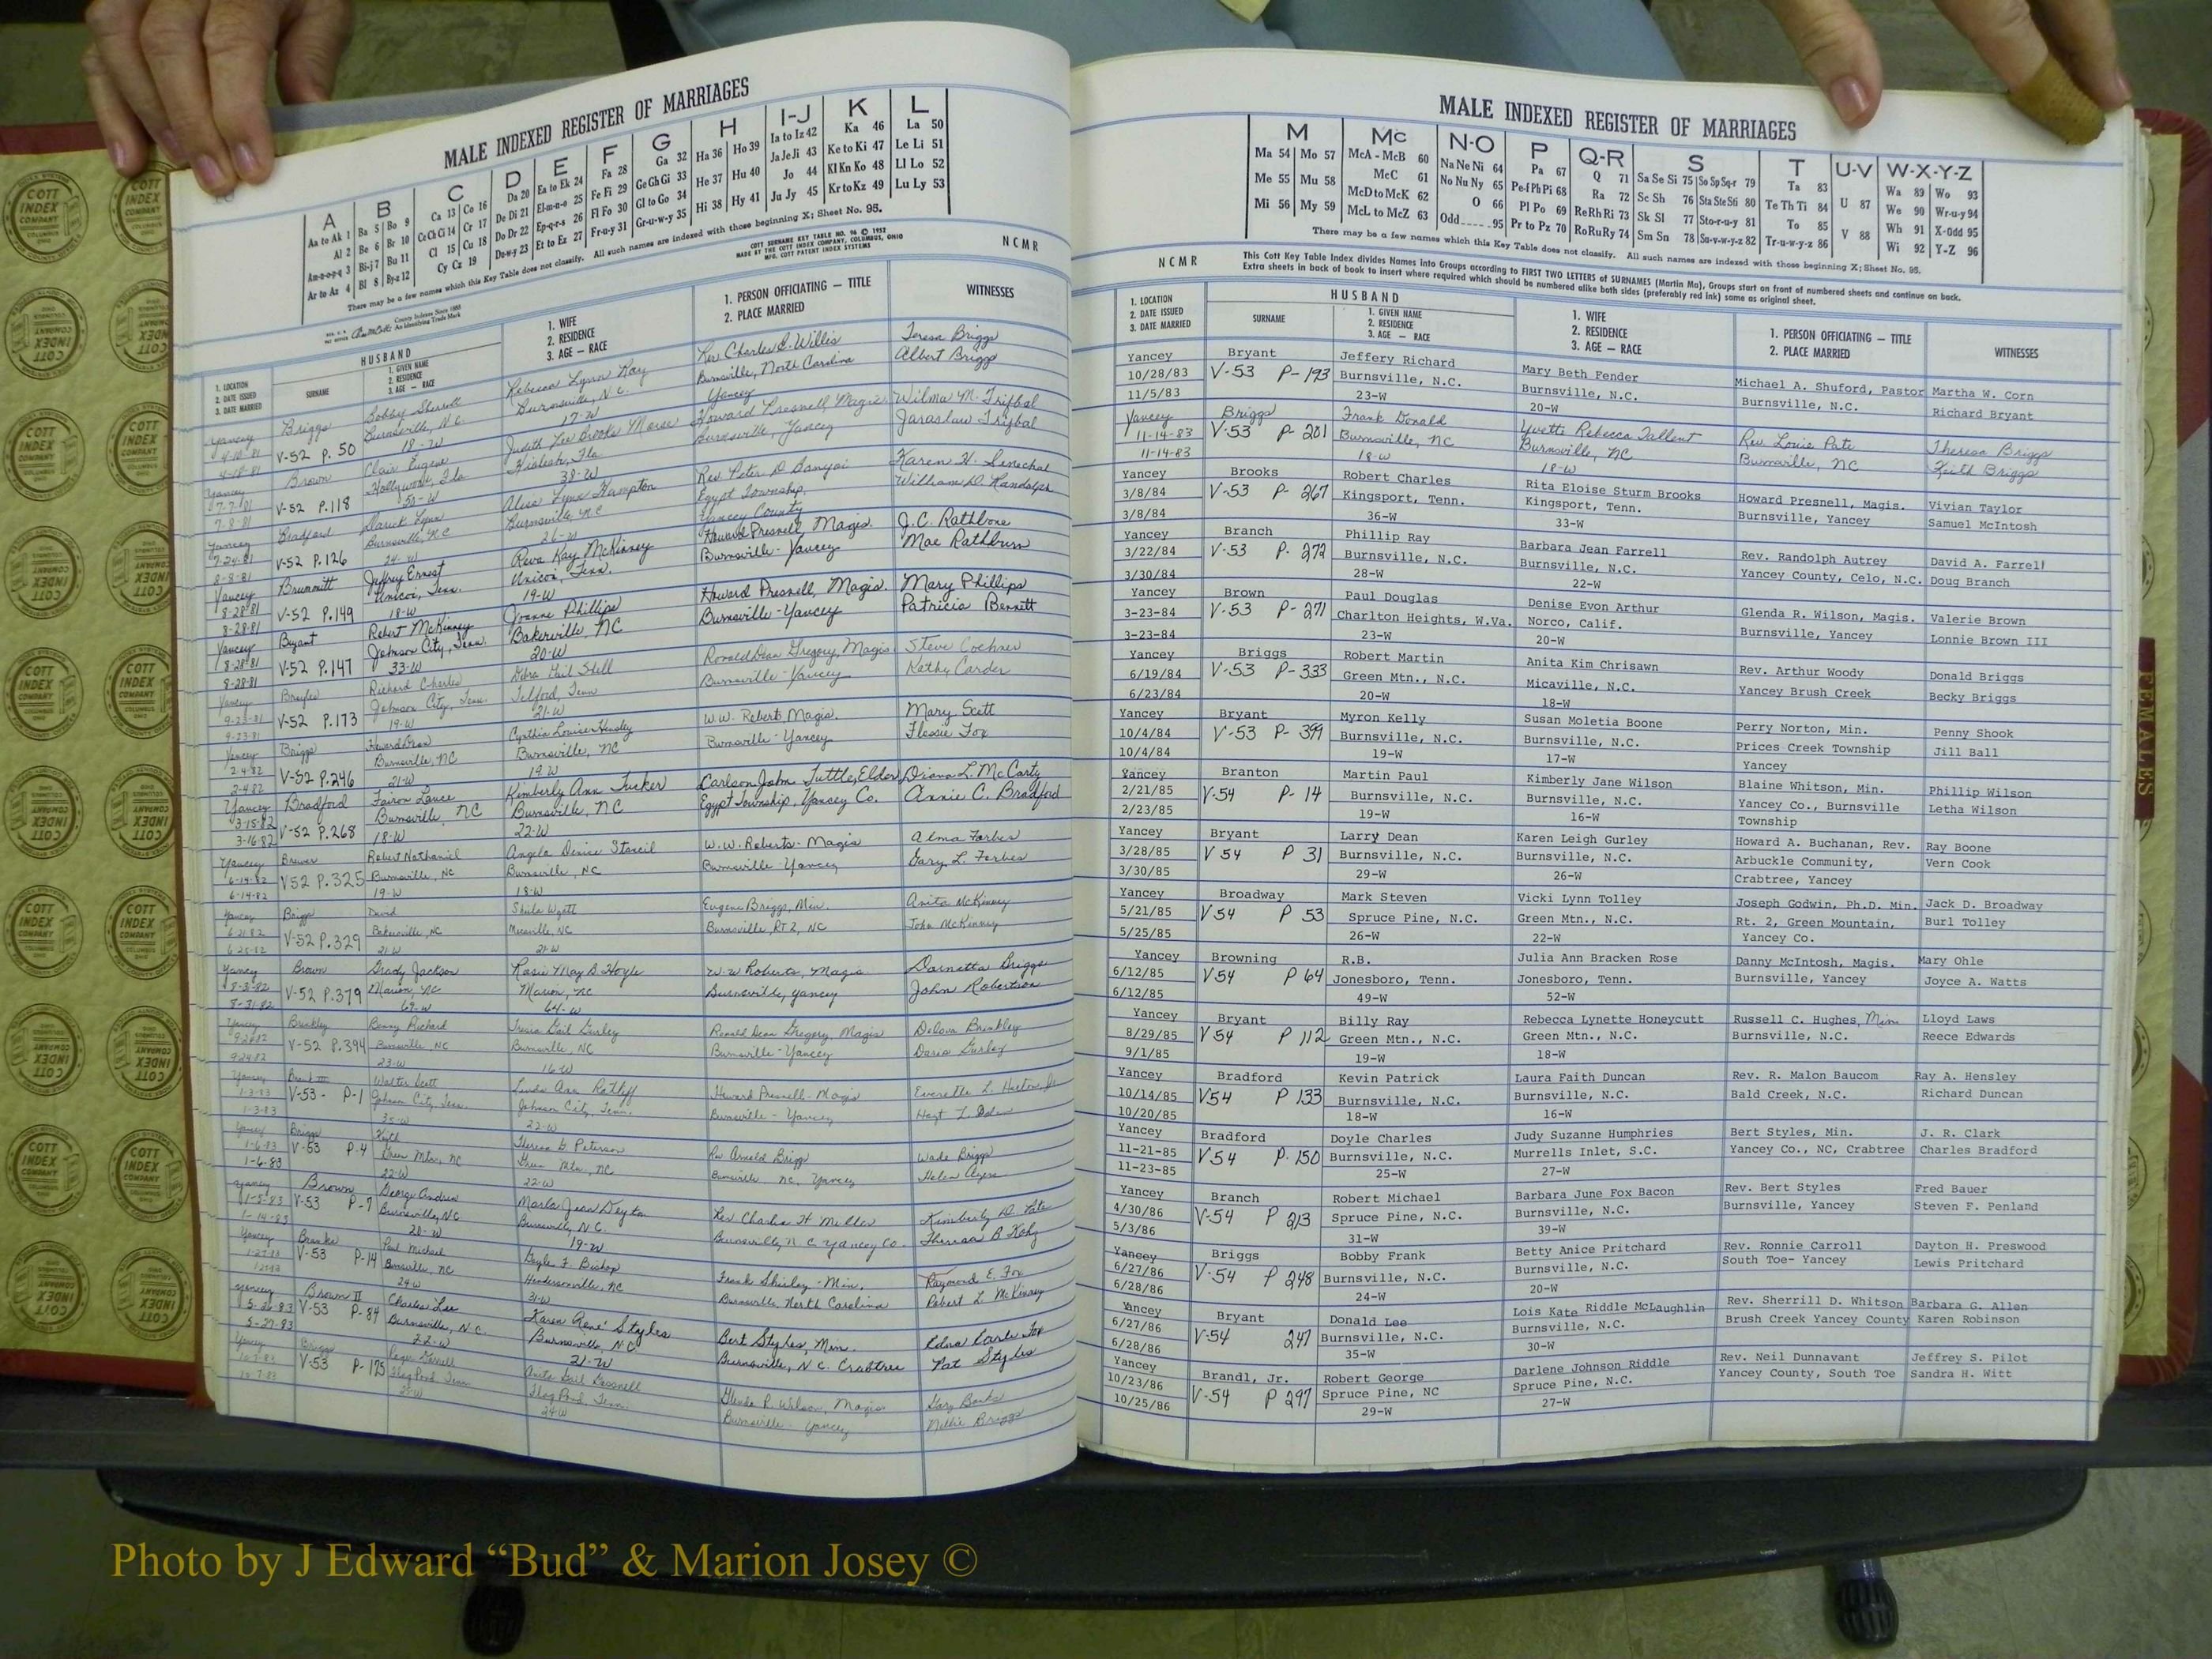 MALE INDEXED REGISTER OF MARRIAGES
A B C D E F G H I-J K L
Aa to Ak 1 Ba 5 Bo 9 Ca 13 Co 16 Da 20 Ea to Ek 24 Fa 28 Ga 32 Ha 36 Ho 39 Ia to Iz 42 Ka 46 La 50
Al 2 Be 6 Br 10 Ce Ch Ci 14 Cr 17 De Di 21 El-m-n-o 25 Fe Fi 29 Ge Gh Gi 33 He 37 Hu 40 Ja Je Ji 43 Ke to Ki 47 Le Li 51
Am-n-o-p-q 3 Bi-j 7 Bu 11 Cl 15 Cu 18 Do Dr 22 Ep-q-r-s 26 Fl Fo 30 Gl to Go 34 Hi 38 Hy 41 Jo 44 Kl Kn Ko 48 Ll Lo 52
Ar to Az 4 Bl 8 By-z 12 Cy Cz 19 Do-w-y 23 Et to Ez 27 Fr-u-y 31 Gr-u-w-y 35 Ju Jy 45 Kr to Kz 49 Lu Ly 53
There may be a few names which this Key Table does not classify. All such names are indexed with those beginning X; Sheet No. 95.
COTT SURNAME KEY TABLE NO. 96 © 1952
MADE BY THE COTT INDEX COMPANY, COLUMBUS, OHIO
MFG. COTT PATENT INDEX SYSTEMS
NCMR
County Indexes Since 1888
An Identifying Trade Mark
HUSBAND
1. LOCATION
2. DATE ISSUED
3. DATE MARRIED
SURNAME
1. GIVEN NAME
2. RESIDENCE
3. AGE — RACE
1. WIFE
2. RESIDENCE
3. AGE — RACE
1. PERSON OFFICIATING — TITLE
2. PLACE MARRIED
WITNESSES
Yancey Briggs Bobby Sherrill Rebecca Lynn Ray Rev Charles E. Willis Teresa Briggs
4-10-81 V-52 P. 50 Burnsville, N.C. Burnsville, N.C. Burnsville, North Carolina Albert Briggs
4-18-81 18-W 17-W Yancey
Yancey Brown Clair Eugene Judith Lee Brooks Morse Howard Presnell, Magis. Wilma M. Trifbal
7-7-81 V-52 P.118 Hollywood, Fla. Hialeah, Fla. Burnsville, Yancey Jaraslaw Trifbal
7-8-81 50-W 38-W
Yancey Bradford Darick Lynn Alisa Lynn Hampton Rev. Peter D. Sanyai Karen H. Senechal
7-24-81 V-52 P.126 Burnsville, N.C. Burnsville, N.C. Egypt Township, William D. Randolph
8-8-81 24-W 26-W Yancey County
Yancey Brummitt Jeffrey Ernest Reva Kay McKinney Howard Presnell Magis. J.C. Rathbone
8-28-81 V-52 P.149 Unicoi, Tenn. Unicoi, Tenn. Burnsville-Yancey Mae Rathburn
8-28-81 18-W 19-W
Yancey Bryant Robert McKinney Joanne Phillips Howard Presnell, Magis. Mary Phillips
8-28-81 V-52 P.147 Johnson City, Tenn. Bakersville, NC Burnsville-Yancey Patricia Bennett
8-28-81 33-W 20-W
Yancey Richard Charles Debra Gail Still Ronald Dean Gregory, Magis Steve Cochner
9-23-81 V-52 P.173 Johnson City, Tenn. Telford, Tenn Burnsville-Yancey Kathy Carder
9-23-81 19-W 21-W
Yancey Briggs Howard Dean Cynthia Louise Hensley W.W. Roberts, Magis. Mary Scott
2-4-82 V-52 P.246 Burnsville, NC Burnsville, NC Burnsville-Yancey Flossie Fox
2-4-82 21-W 19 W
Yancey Bradford Fairon Lance Kimberly Ann Tucker Carlson John Tuttle, Elder Diana L. McCarty
3-15-82 V-52 P.268 Burnsville, NC Burnsville, NC Egypt Township, Yancey Co. Annie C. Bradford
3-16-82 18-W 22-W
Yancey Brewer Robert Nathaniel Angela Denise Stancil W.W. Roberts-Magis Alma Forbes
6-14-82 V52 P.325 Burnsville, NC Burnsville, NC Burnsville-Yancey Gary L. Forbes
6-14-82 19-W 18-W
Yancey Briggs David Shiela Wyatt Eugene Briggs, Min. Anita McKinney
6-21-82 V-52 P.329 Bakersville, NC Micaville, NC Burnsville, RT 2, NC John McKinney
6-25-82 21 W 21-W
Yancey Brown Grady Jackson Rosie May B. Hoyle W.W Roberts, Magis. Darnetta Briggs
8-3-82 V-52 P.379 Marion, NC Marion, NC Burnsville, Yancey John Robertson
8-31-82 69-W 64-W
Yancey Brinkley Benny Richard Tricia Gail Gurley Ronald Dean Gregory, Magis Delora Brinkley
V-52 P.394 Burnsville, NC Burnsville, NC Burnsville-Yancey Doris Gurley
23-W 16 W
Yancey Brank III Walter Scott Linda Ann Ratliff Howard Presnell-Magis
1-3-83 V-53- P-1 Johnson City, Tenn. Johnson City, Tenn. Burnsville-Yancey
1-3-83 35-W 22-W
Yancey Briggs Keith Theresa G. Peterson Rev Arnold Briggs Wade Briggs
1-6-83 V-53 P.4 Green Mtn, NC Green Mtn, NC Burnsville NC, Yancey Helen Ayers
1-6-83 22-W 22-W
Yancey Brown George Andrew Marla Jean Deyton Rev Charles H Miller Kimberly D. Pate
1-5-83 V-53 P-7 Burnsville, NC Burnsville, N.C. Burnsville, N C Yancey Co. Theresa B
1-14-83 20-W 19-W
Yancey Paul Michael Gayle F. Bishop Frank Shirley-Min. Raymond E. Fox
V-53 P-14 Burnsville, NC Hendersonville, NC Burnsville, North Carolina Robert L. McKinney
24W 31-W
Yancey Brown II Charles Lee Karen René Styles Bert Styles, Min. Edna Earle Fox
5-26-83 V-53 P-84 Burnsville, N.C. Burnsville, N C Burnsville, N.C. Crabtree Pat Styles
5-27-83 22-W 21-W
Yancey Briggs Roger Darrell Anita Gail Glenda R. Wilson, Magis Gary Banks
10-7-83 V-53 P-175 Flag Pond, Tenn Flag Pond, Tenn. Burnsville-Yancey Nellie Briggs
10-7-83 24W
MALE INDEXED REGISTER OF MARRIAGES
M Mc N-O P Q-R S T U-V W-X-Y-Z
Ma 54 Mo 57 McA - McB 60 Na Ne Ni 64 Pa 67 Q 71 Sa Se Si 75 So Sp Sq-r 79 Ta 83 U 87 Wa 89 Wo 93
Me 55 Mu 58 McC 61 No Nu Ny 65 Pe-f Ph Pi 68 Ra 72 Sc Sh 76 Sta Ste Sti 80 Te Th Ti 84 V 88 We 90 Wr-u-y 94
Mi 56 My 59 McD to McK 62 O 66 Pl Po 69 Re Rh Ri 73 Sk Sl 77 Sto-r-u-y 81 To 85 Wh 91 X-Odd 95
McL to McZ 63 Odd 95 Pr to Pz 70 Ro Ru Ry 74 Sm Sn 78 Su-v-w-y-z 82 Tr-u-w-y-z 86 Wi 92 Y-Z 96
There may be a few names which this Key Table does not classify. All such names are indexed with those beginning X; Sheet No. 95.
NCMR
This Cott Key Table Index divides Names into Groups according to FIRST TWO LETTERS of SURNAMES (Martin Ma), Groups start on front of numbered sheets and continue on back.
Extra sheets in back of book to insert where required which should be numbered alike both sides (preferably red ink) same as original sheet.
HUSBAND
1. LOCATION
2. DATE ISSUED
3. DATE MARRIED
SURNAME
1. GIVEN NAME
2. RESIDENCE
3. AGE — RACE
1. WIFE
2. RESIDENCE
3. AGE — RACE
1. PERSON OFFICIATING — TITLE
2. PLACE MARRIED
WITNESSES
Yancey Bryant Jeffery Richard Mary Beth Fender Michael A. Shuford, Pastor Martha W. Corn
10/28/83 V-53 P-193 Burnsville, N.C. Burnsville, N.C. Burnsville, N.C. Richard Bryant
11/5/83 23-W 20-W
Yancey Briggs Frank Donald Yvette Rebecca Tallent Rev. Louie Pate Theresa Briggs
11-14-83 V-53 P-201 Burnsville, NC Burnsville, NC Burnsville, NC Keith Briggs
11-14-83 18-W 18-W
Yancey Brooks Robert Charles Rita Eloise Sturm Brooks Howard Presnell, Magis. Vivian Taylor
3/8/84 V-53 P-267 Kingsport, Tenn. Kingsport, Tenn. Burnsville, Yancey Samuel McIntosh
3/8/84 36-W 33-W
Yancey Branch Phillip Ray Barbara Jean Farrell Rev. Randolph Autrey David A. Farrell
3/22/84 V-53 P. 272 Burnsville, N.C. Burnsville, N.C. Yancey County, Celo, N.C. Doug Branch
3/30/84 28-W 22-W
Yancey Brown Paul Douglas Denise Evon Arthur Glenda R. Wilson, Magis. Valerie Brown
3-23-84 V-53 P-271 Charlton Heights, W.Va. Norco, Calif. Burnsville, Yancey Lonnie Brown III
3-23-84 23-W 20-W
Yancey Briggs Robert Martin Anita Kim Chrisawn Rev. Arthur Woody Donald Briggs
6/19/84 V-53 P-333 Green Mtn., N.C. Micaville, N.C. Yancey Brush Creek Becky Briggs
6/23/84 20-W 18-W
Yancey Bryant Myron Kelly Susan Moletia Boone Perry Norton, Min. Penny Shook
10/4/84 V-53 P-399 Burnsville, N.C. Burnsville, N.C. Prices Creek Township Jill Ball
10/4/84 19-W 17-W Yancey
Yancey Branton Martin Paul Kimberly Jane Wilson Blaine Whitson, Min. Phillip Wilson
2/21/85 V-54 P-14 Burnsville, N.C. Burnsville, N.C. Yancey Co., Burnsville Letha Wilson
2/23/85 19-W 16-W Township
Yancey Bryant Larry Dean Karen Leigh Gurley Howard A. Buchanan, Rev. Ray Boone
3/28/85 V 54 P 31 Burnsville, N.C. Burnsville, N.C. Arbuckle Community, Vern Cook
3/30/85 29-W 26-W Crabtree, Yancey
Yancey Broadway Mark Steven Vicki Lynn Tolley Joseph Godwin, Ph.D. Min. Jack D. Broadway
5/21/85 V54 P 53 Spruce Pine, N.C. Green Mtn., N.C. Rt. 2, Green Mountain, Burl Tolley
5/25/85 26-W 22-W Yancey Co.
Yancey Browning R.B. Julia Ann Bracken Rose Danny McIntosh, Magis. Mary Ohle
6/12/85 V54 P 64 Jonesboro, Tenn. Jonesboro, Tenn. Burnsville, Yancey Joyce A. Watts
6/12/85 49-W 52-W
Yancey Bryant Billy Ray Rebecca Lynette Honeycutt Russell C. Hughes, Min Lloyd Laws
8/29/85 V54 P 112 Green Mtn., N.C. Green Mtn., N.C. Burnsville, N.C. Reece Edwards
9/1/85 19-W 18-W
Yancey Bradford Kevin Patrick Laura Faith Duncan Rev. R. Malon Baucom Ray A. Hensley
10/14/85 V54 P 133 Burnsville, N.C. Burnsville, N.C. Bald Creek, N.C. Richard Duncan
10/20/85 18-W 16-W
Yancey Bradford Doyle Charles Judy Suzanne Humphries Bert Styles, Min. J. R. Clark
11-21-85 V54 P. 150 Burnsville, N.C. Murrells Inlet, S.C. Yancey Co., NC, Crabtree Charles Bradford
11-23-85 25-W 27-W
Yancey Branch Robert Michael Barbara June Fox Bacon Rev. Bert Styles Fred Bauer
4/30/86 V-54 P 213 Spruce Pine, N.C. Burnsville, N.C. Burnsville, Yancey Steven F. Penland
5/3/86 31-W 39-W
Yancey Briggs Bobby Frank Betty Anice Pritchard Rev. Ronnie Carroll Dayton H. Preswood
6/27/86 V-54 P 248 Burnsville, N.C. Burnsville, N.C. South Toe- Yancey Lewis Pritchard
6/28/86 24-W 20-W
Yancey Bryant Donald Lee Lois Kate Riddle McLaughlin Rev. Sherrill D. Whitson Barbara G. Allen
6/27/86 V-54 247 Burnsville, N.C. Burnsville, N.C. Brush Creek Yancey County Karen Robinson
6/28/86 35-W 30-W
Yancey Brandl, Jr. Robert George Darlene Johnson Riddle Rev. Neil Dunnavant Jeffrey S. Pilot
10/23/86 V-54 P 297 Spruce Pine, NC Spruce Pine, N.C. Yancey County, South Toe Sandra H. Witt
10/25/86 29-W 27-W
FEMALES
COTT INDEX COMPANY COLUMBUS OHIO
Photo by J Edward “Bud” & Marion Josey ©